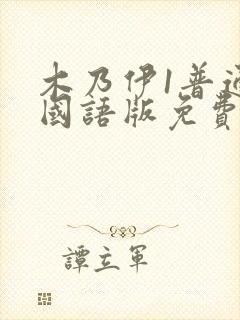 木乃伊1普通
國語版免費
譚立軍